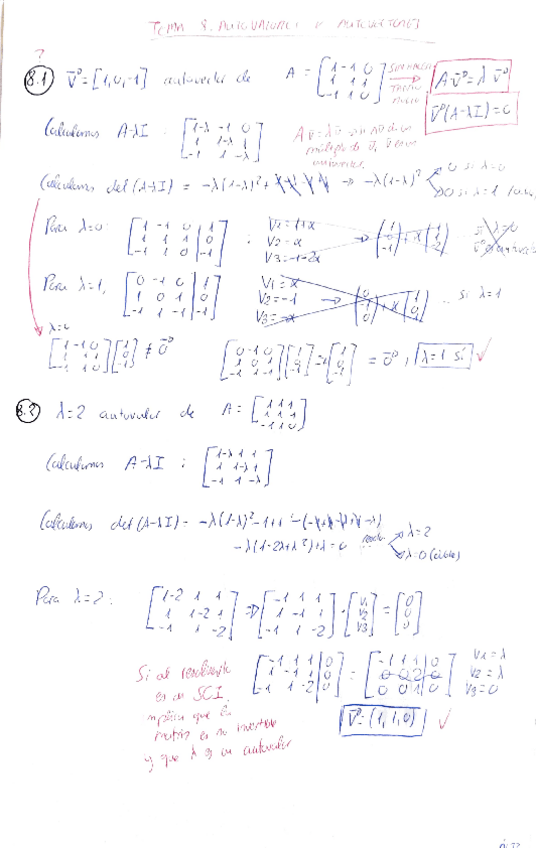 TEMA 8. AUTOVALORES Y AUTOVECTORES
?
8.1 v⃗ = [1,0,-1] autovector de A = [1 -1 0; 1 1 1; -1 1 0]
A·v⃗ = λ·v⃗
v⃗(A-λI) = 0
Calculamos A-λI : [1-λ -1 0; 1 1-λ 1; -1 1 -λ]
Calculamos det(A-λI) = -λ(1-λ)² → -λ(1-λ)² 0 si λ=0
0 si λ=1
Para λ=0: [1 -1 0 | 1; 1 1 1 | 0; -1 1 0 | -1] : V1=1+α
V2=α
V3=-1-2α → (1 0 -1) + α(1 1 -2) si λ=0
Para λ=1, [0 -1 0 | 1; 1 0 1 | 0; -1 1 -1 | -1] V1=α
V2=-1
V3=-α → (0 -1 0) + α(1 0 1) si λ=1
λ=0
[1 -1 0; 1 1 1; -1 1 0] [1 0 -1] ≠ v⃗ [0 -1 0; 1 0 1; -1 1 -1] [1 0 -1] = [1 0 -1] = v⃗, λ=1 sí ✓
8.2 λ=2 autovalor de A = [1 1 1; 1 1 1; -1 1 0]
Calculamos A-λI : [1-λ 1 1; 1 1-λ 1; -1 1 -λ]
Calculamos det(A-λI) = -λ(1-λ)² -1+1
-λ(1-2λ+λ²)+λ=0 λ=2
λ=0 (doble)
Para λ=2: [1-2 1 1; 1 1-2 1; -1 1 -2] ⇒ [-1 1 1; 1 -1 1; -1 1 -2] · [V1 V2 V3] = [0 0 0]
Si al
es un SCI,
implica que la
matriz es no invertible
y que λ es un autovalor
[-1 1 1 | 0; 1 -1 1 | 0; -1 1 -2 | 0] = [-1 1 1 | 0; 0 0 2 | 0; 0 0 1 | 0] V1=λ
V2=λ
V3=0
v⃗ = (1,1,0) ✓